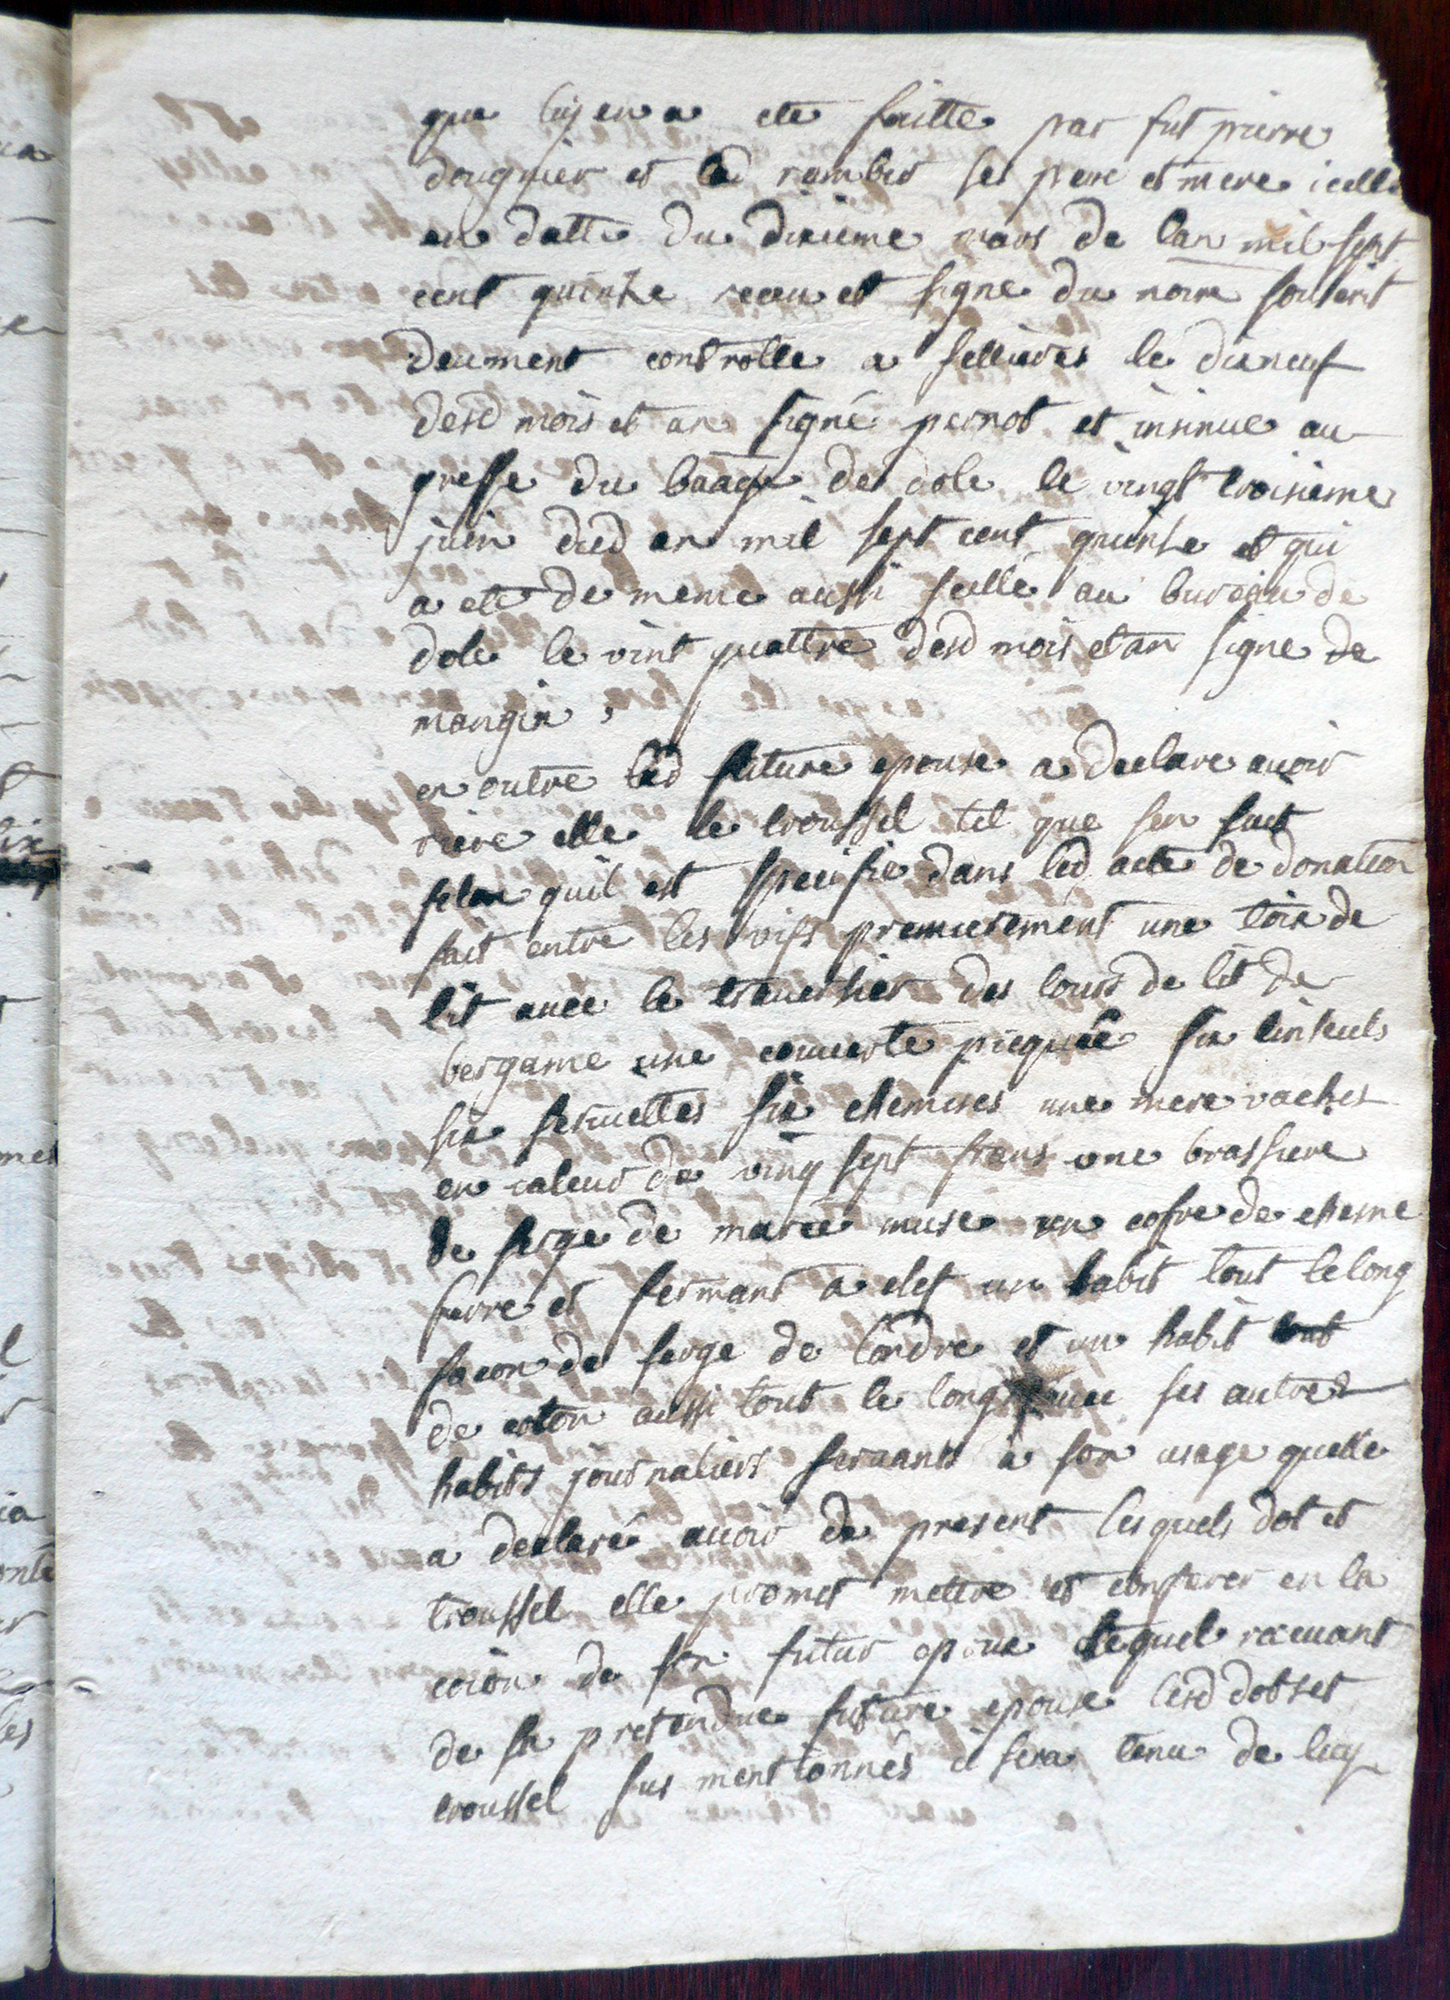 que luy en a ete faitte par fut pierre
douguier et lad rambor ses pere et mere icelle
en datte du dixieme mars de lan mil sept
cent quinze receu et signe du noire souscrit
deument controlle a sellieres le dixneuf
desd mois et an signé pernot et insinue au
greffe du baage de dole le vingt troisieme
juin dud an mil sept cent quinze et qui
a ete de meme aussi scellé au bureau de
dole le vint quattre desd mois et an signe de
mangin ,
en outre lad future epouse a declare auoir
riere elle le troussel tel que sen suit
selon quil est specifie dans led acte de donation
fait entre les vifs premierement une toix de
lit auec le trauersier des tours de lit de
bergame une couuerte picquée six linseuls
six seruiettes six chemises une mere vaches
en valeur de ving sept frans une brassiere
de serge de marée muse un cofre de chesne
ferre et fermant a clef un habit tout le long
facon de serge de londre et un habit tout
de coton aussi tout le long auec ses autres
habits journaliers seruants à son usage quelle
a declaré auoir de present lesquels dot et
troussel elle promet mettre et conferer en la
coion de son futur epoux lequel receuant
de sa pretendue future epouse lesd dots et
troussel sus mentionnés il sera tenu de luy